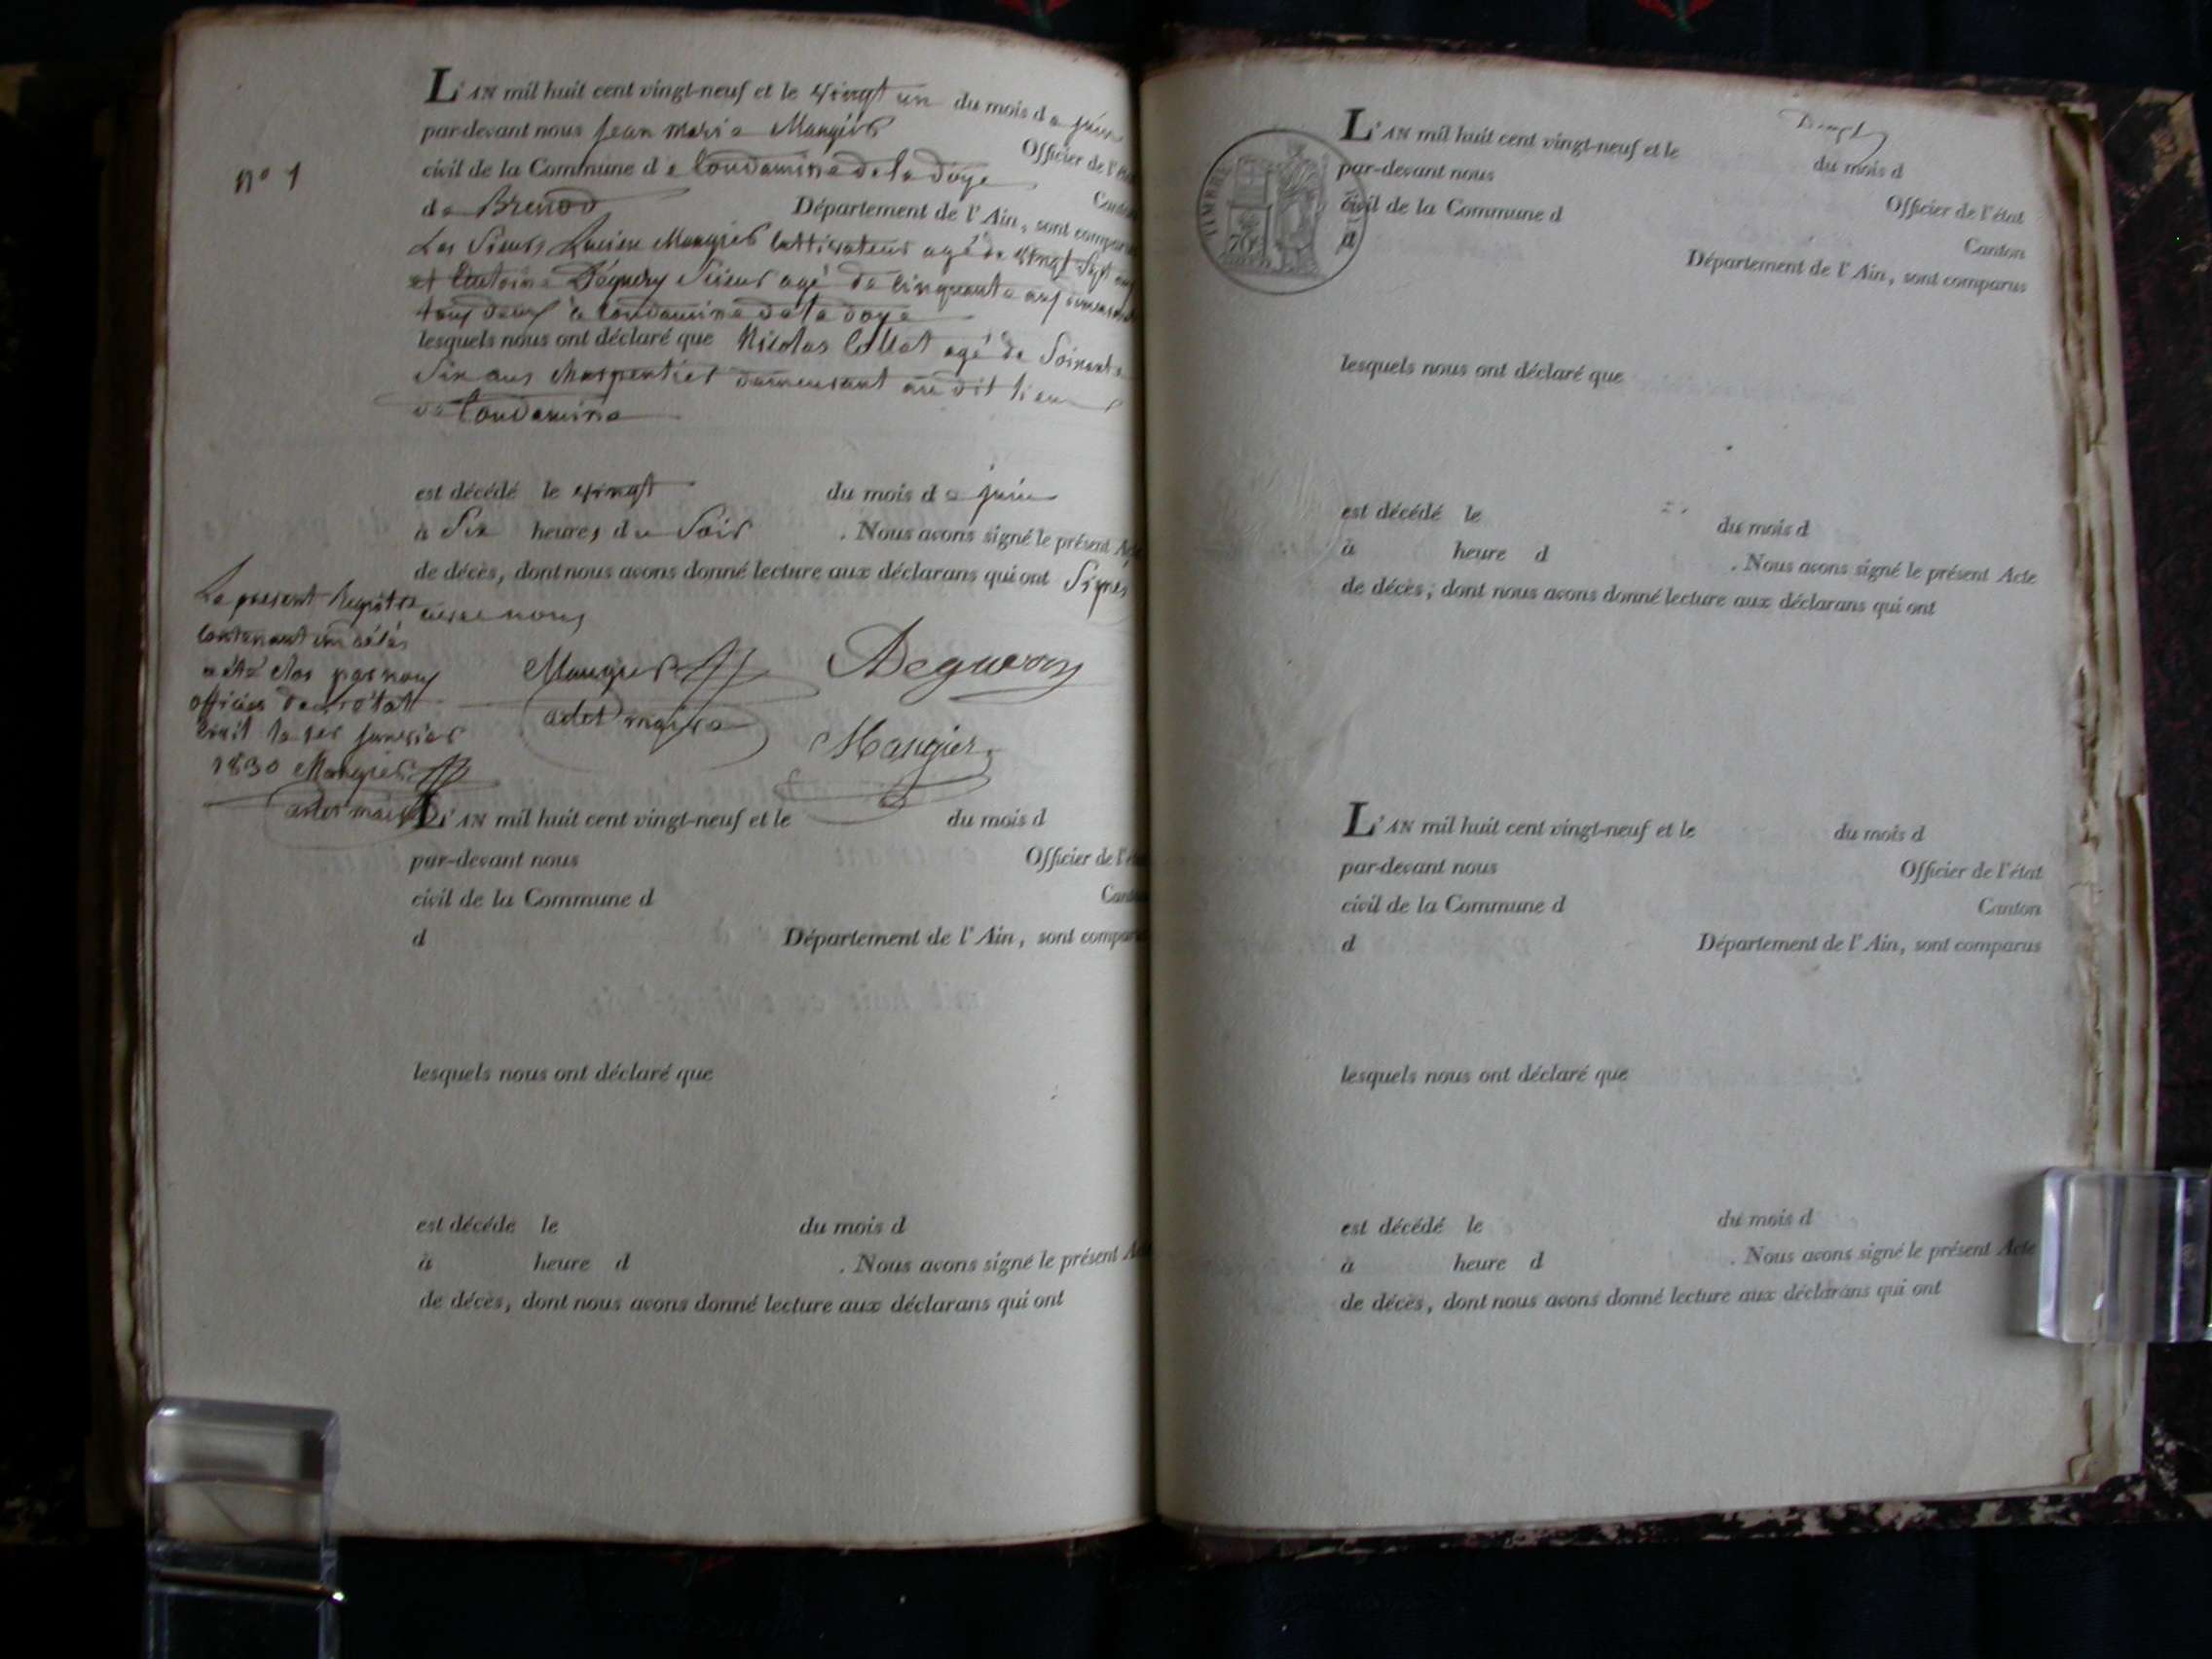 L'AN mil huit cent vingt-neuf et le vingt un du mois de juin
par-devant nous Jean Marie Maugier Officier de l'état
civil de la Commune de Condamine de la doye Canton
de Brenod Département de l'Ain, sont comparus
Les Sieurs Lucien Maugier Cultivateur agé de vingt Sept ans
et Antoine Déguery agé de Cinquante
tous deux à Condamine de la doye
lesquels nous ont déclaré que Nicolas Collet agé de Soixante
Six ans Charpentier demeurant au dit lieu
de Condamine
n° 1
est décédé le vingt du mois de juin
à Six heures du Soir . Nous avons signé le présent Acte
de décès, dont nous avons donné lecture aux déclarans qui ont Signés
avec nous
Maugier
adet maire
Maugier
Le présent Registre
contenant un actes
a été clos par nous
officier de l'état
civil le 1er janvier
1830 Maugier
L'AN mil huit cent vingt-neuf et le du mois d
par-devant nous Officier de l'état
civil de la Commune d Canton
d Département de l'Ain, sont comparus
lesquels nous ont déclaré que
est décédé le du mois d
à heure d . Nous avons signé le présent Acte
de décès, dont nous avons donné lecture aux déclarans qui ont
TIMBRE ROYAL
L'AN mil huit cent vingt-neuf et le du mois d
par-devant nous Officier de l'état
civil de la Commune d Canton
d Département de l'Ain, sont comparus
lesquels nous ont déclaré que
est décédé le du mois d
à heure d . Nous avons signé le présent Acte
de décès, dont nous avons donné lecture aux déclarans qui ont
L'AN mil huit cent vingt-neuf et le du mois d
par-devant nous Officier de l'état
civil de la Commune d Canton
d Département de l'Ain, sont comparus
lesquels nous ont déclaré que
est décédé le du mois d
à heure d . Nous avons signé le présent Acte
de décès, dont nous avons donné lecture aux déclarans qui ont